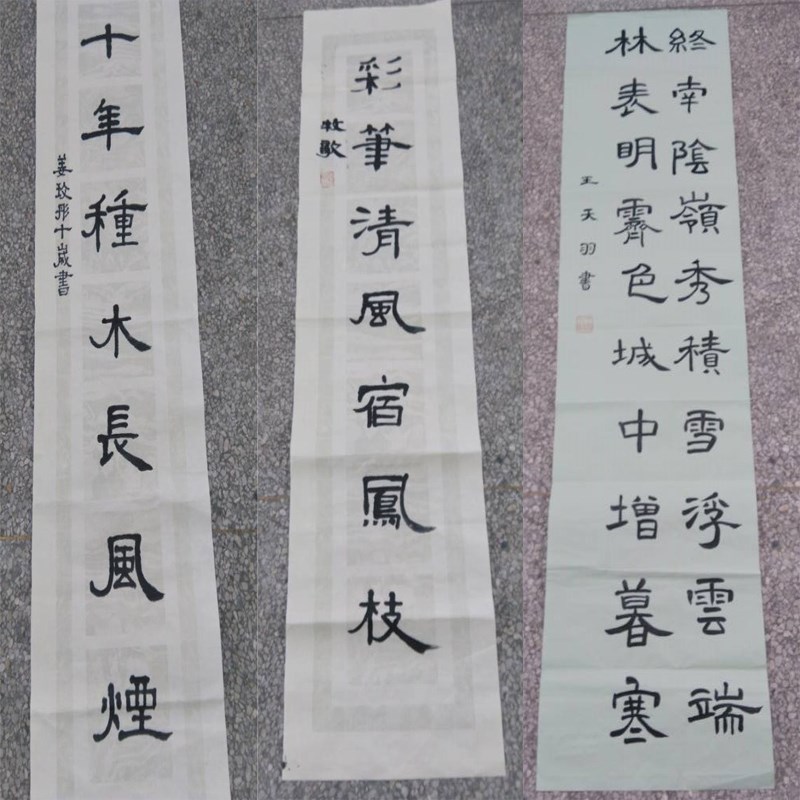 十年種木長風煙
姜玫彤十歲書
彩筆清風宿鳳枝
牧歌
終南陰嶺秀積雪浮雲端
林表明霽色城中增暮寒
王天羽書